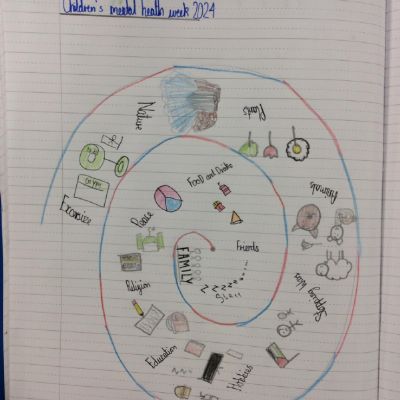 Children's mental health week 2024
Nature
Plants
Animals
Exercise
Food and Drinks
Peace
Friends
FAMILY
Z Z Z Z Z
Religion
Education
Hobbies